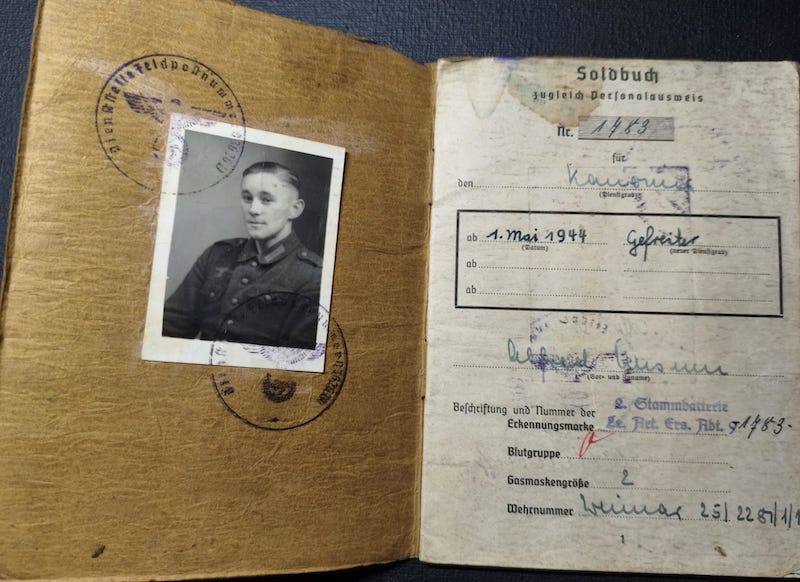 Dienststelle Feldpostnummer
Soldbuch
zugleich Personalausweis
Nr. 1783
für
den Kanonier
(Dienstgrad)
ab 1. Mai 1944 Gefreiter
(Datum) (neuer Dienstgrad)
ab
ab
Alfred
(Vor- und Zuname)
Beschriftung und Nummer der 2. Stammbatterie
Erkennungsmarke Le. Art. Ers. Abt. 1783.
Blutgruppe
Gasmaskengröße 2
Wehrnummer Weimar 25/22
1